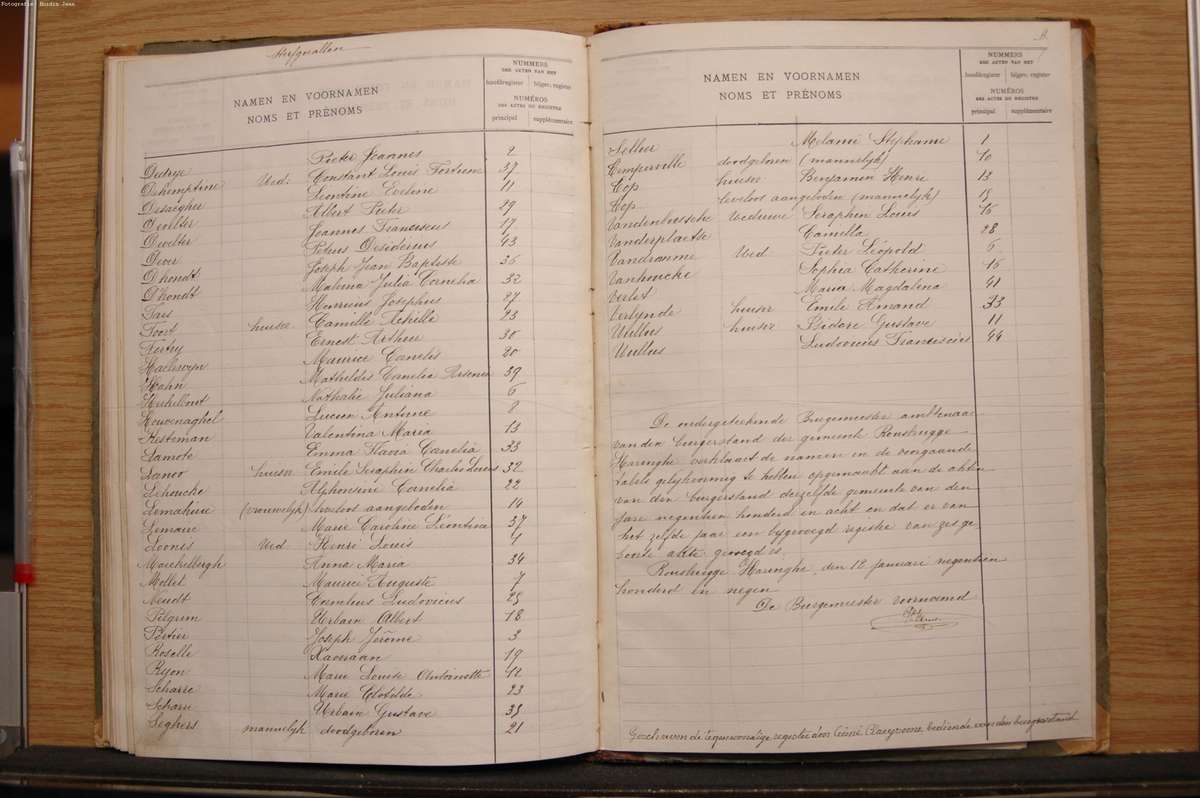 Fotografie: Houdin Jean
Sterfgevallen
NAMEN EN VOORNAMEN
NOMS ET PRÉNOMS
NUMMERS
DER AKTEN VAN HET
hoofdregister bijgev. register
NUMÉROS
DES ACTES DU REGISTRE
principal supplémentaire
Pieter Joannes 2
Dehemptine Wed. Constant Louis Fortuné 37
Desaegher Leontine Eveline 11
Dewelter Albert Pieter 29
Dewelter Joannes Franciscus 17
Petrus Desiderius 43
Dhondt Joseph Jean Baptiste 36
D'hondt Malvina Julia Cornelia 32
Henricus Josephus 27
Foort huiser Camille Achille 23
Ernest Arthur 30
Maurice Cornelis 20
Hahn Mathilde Camelia Arsenia 39
Nathalie Juliana 6
Houvenaghel Lucien Antoine 8
Kesteman Valentina Maria 13
Lamote Emma Flavia Cornelia 33
Lanoo huiser Emile Seraphin Charles Louis 32
Lehoucke Alphonsine Cornelia 22
Lemahieu (vrouwelijk) levloos aangeboden 14
Lemaire Marie Caroline Léontina 37
Loonis Wed. Henri Louis 4
Maeckelbergh Anna Maria 34
Mollet Maurice Auguste 7
Neudt Cornelius Ludovicus 25
Pelgrim Urbain Albert 18
Joseph Jerôme 3
Roselle Xaveriaan 19
Ryon Marie Louise Antoinette 42
Scharre Marie Clotilde 23
Scharre Urbain Gustave 38
Seghers mannelijk doodgeboren 21
NAMEN EN VOORNAMEN
NOMS ET PRÉNOMS
NUMMERS
DER AKTEN VAN HET
hoofdregister bijgev. register
NUMÉROS
DES ACTES DU REGISTRE
principal supplémentaire
Melanie Stephanie 1
Temperville doodgeboren (mannelijk) 10
Top huiser Benjamin Henri 12
Top levloos aangeboden (mannelijk) 15
Vandenbossche weduwe Seraphin Louis 16
Vanderplaetse Camilla 28
Vandromme Wed. Pieter Léopold 5
Vanhoucke Sophia Catherine 16
Verlet Maria Magdalina 41
Verlynde huiser Emile Amand 33
Wullus huiser Isidore Gustave 11
Wullus Ludovicus Franciscus 44
De ondergeteekende Burgemeester ambtenaar
van den burgerstand der gemeente Rousbrugge
Haringhe verklaart de namen in de voorgaande
tabele gelijkvormig te hebben opgemaakt aan de akten
van den burgerstand derzelfde gemeente van den
jare negentien honderd en acht en dat er van
het zelfde jaar een bijgevoegd register van zes ge
boorte akte gevoegd is.
Rousbrugge Haringhe, den 12 januari negentien
honderd en negen
De Burgemeester voornoemd
Geschreven de tegenwoordige register door bediende van den burgerstand